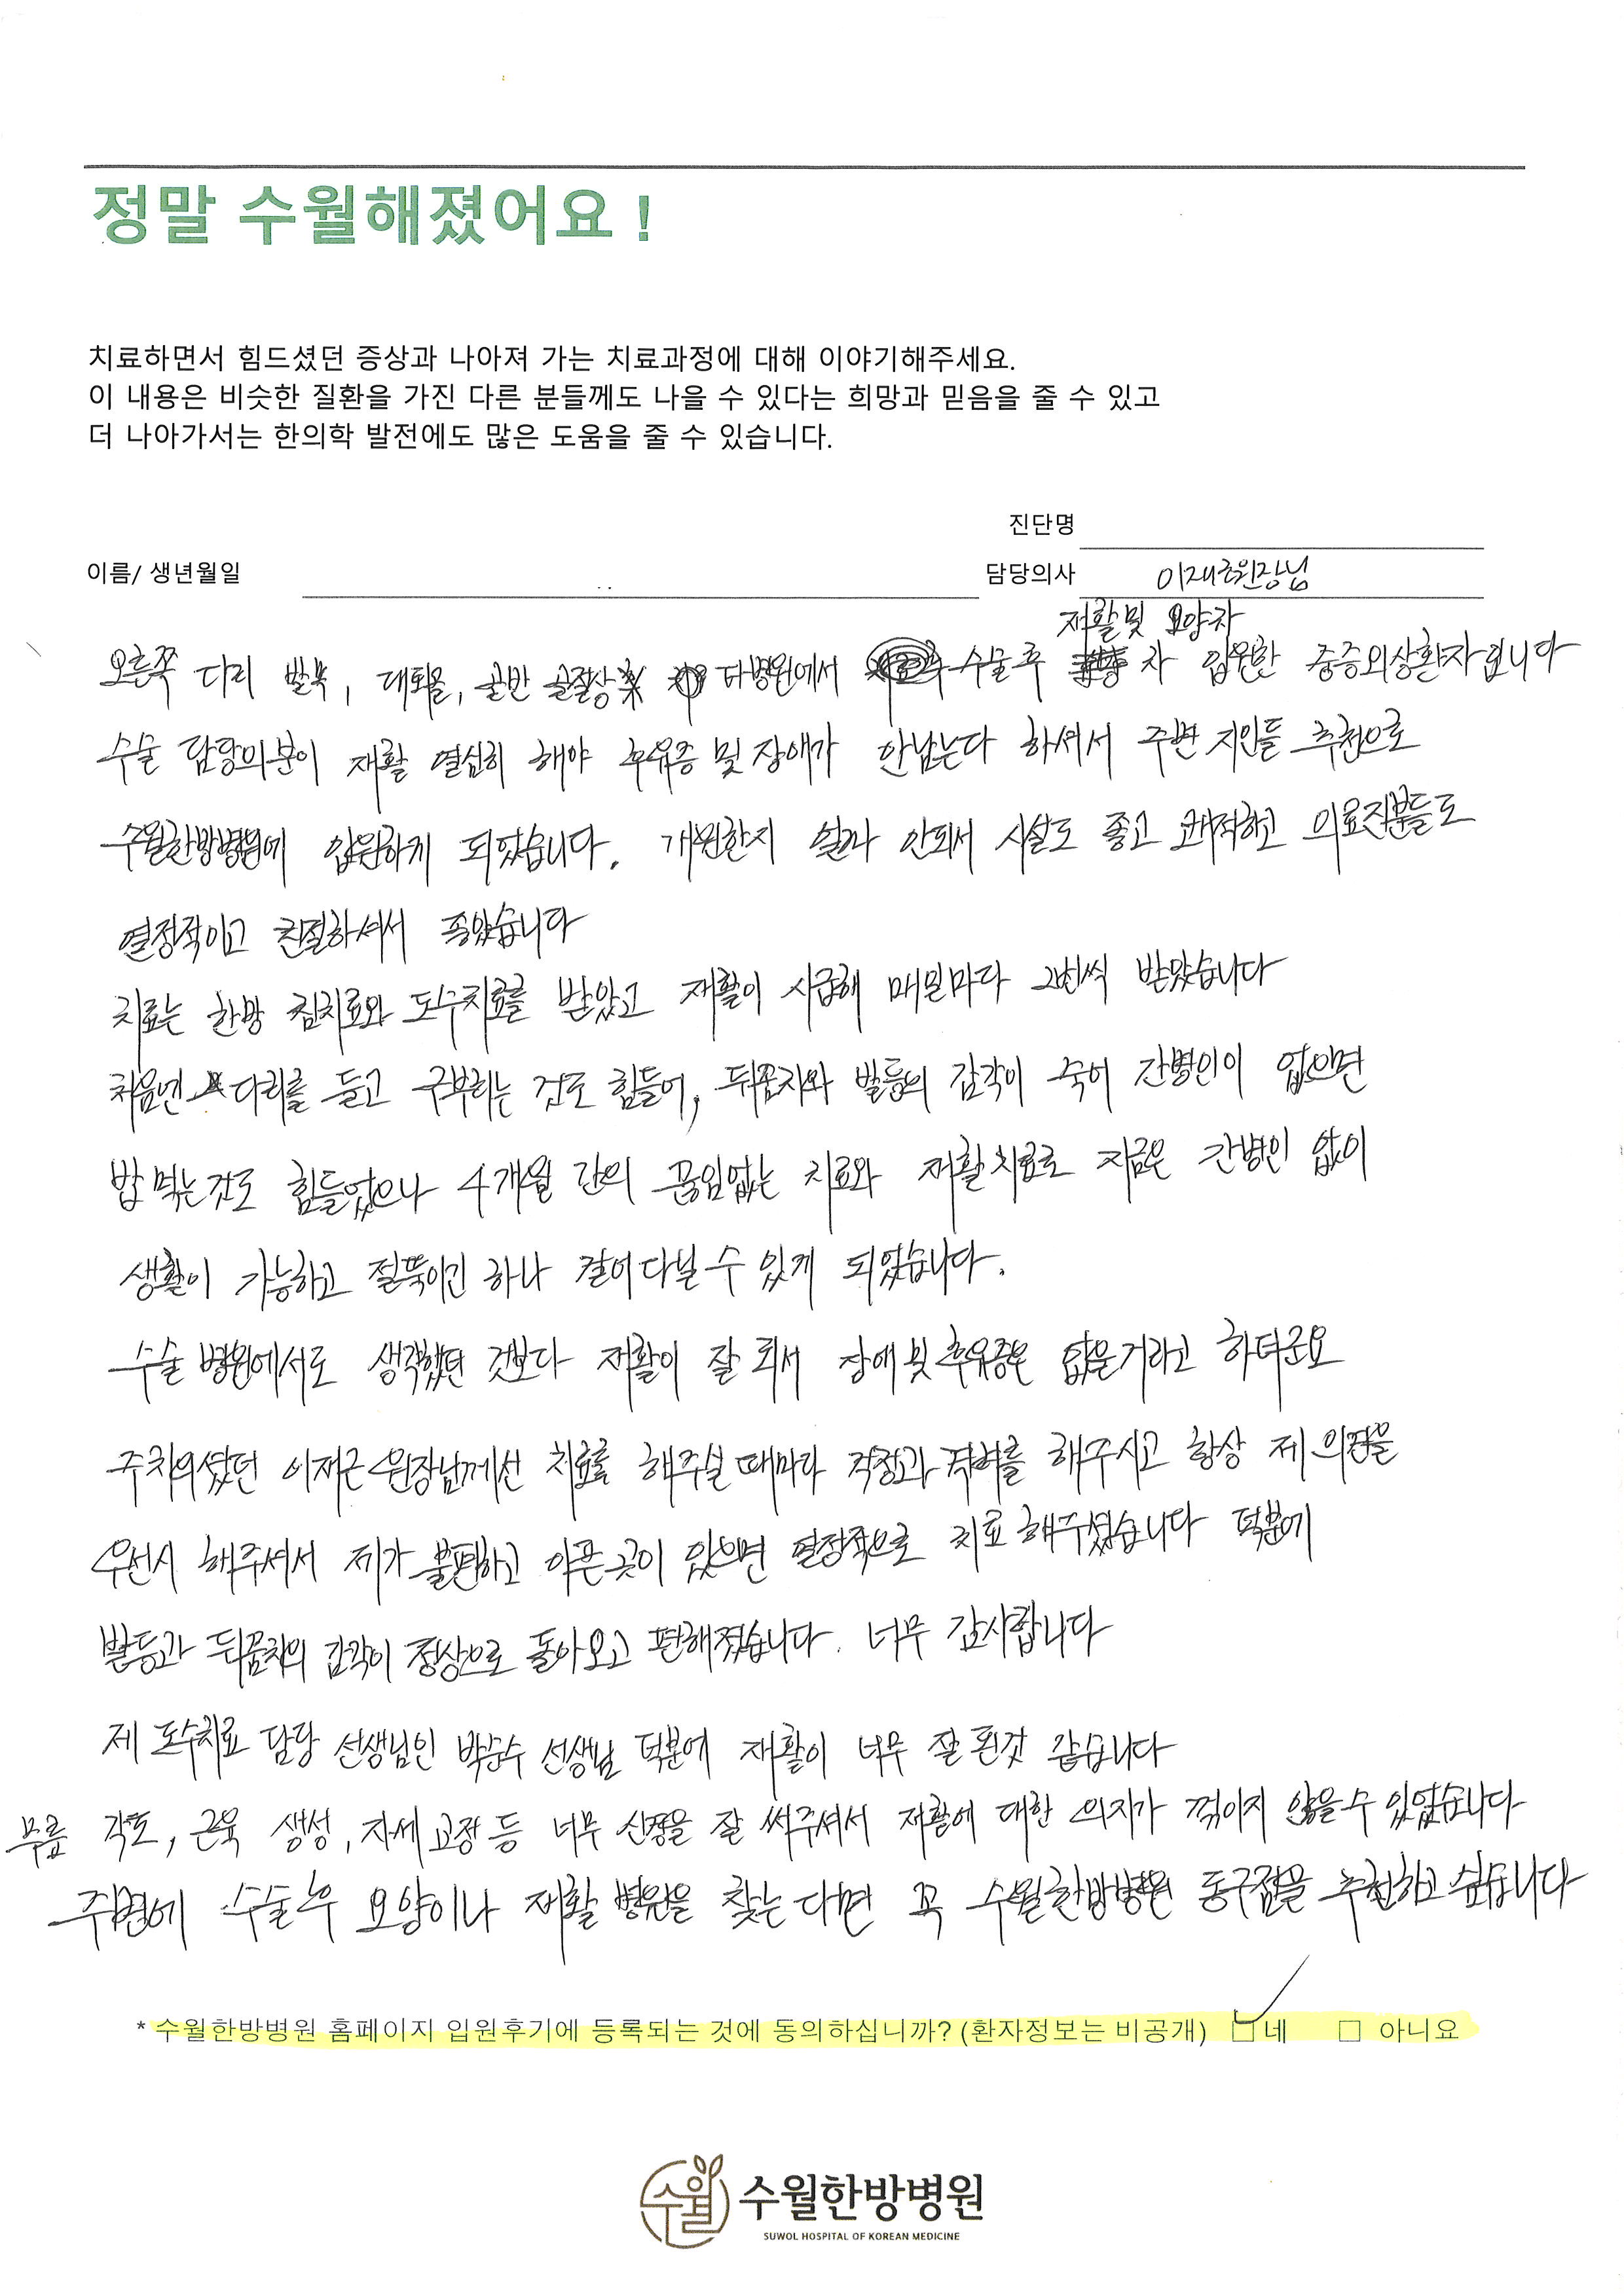 정말 수월해졌어요 !
치료하면서 힘드셨던 증상과 나아져 가는 치료과정에 대해 이야기해주세요.
이 내용은 비슷한 질환을 가진 다른 분들께도 나을 수 있다는 희망과 믿음을 줄 수 있고
더 나아가서는 한의학 발전에도 많은 도움을 줄 수 있습니다.
진단명
이름/ 생년월일 담당의사 이재근원장님
재활및 요양차
오른쪽 다리 발목, 대퇴골, 골반 골절상 타병원에서 수술후 차 입원한 중증외상환자입니다
수술 담당의분이 재활 열심히 해야 후유증 및 장애가 안남는다 하셔서 주변 지인들 추천으로
수월한방병원에 입원하게 되었습니다. 개원한지 얼마 안되서 시설도 좋고 쾌적하고 의료진분들도
열정적이고 친절하셔서 좋았습니다
치료는 한방 침치료와 도수치료를 받았고 재활이 시급해 매일마다 2번씩 받았습니다
처음엔 다리를 들고 구부리는 것도 힘들어, 뒤꿈치와 발등의 감각이 죽어 간병인이 없으면
밥 먹는것도 힘들었으나 4개월 간의 끊임없는 치료와 재활치료로 지금은 간병인 없이
생활이 가능하고 절뚝이긴 하나 걸어다닐 수 있게 되었습니다.
수술 병원에서도 생각했던 것보다 재활이 잘 되서 장애 및 후유증은 없을거라고 하더군요
주치의셨던 이재근 원장님께선 치료를 해주실 때마다 걱정과 격려를 해주시고 항상 제 의견을
우선시 해주셔서 제가 불편하고 아픈곳이 있으면 열정적으로 치료해주셨습니다 덕분에
발등과 뒤꿈치의 감각이 정상으로 돌아오고 편해졌습니다. 너무 감사합니다
제 도수치료 담당 선생님인 선생님 덕분에 재활이 너무 잘 된것 같습니다
무릎 각도, 근육 생성, 자세 교정 등 너무 신경을 잘 써주셔서 재활에 대한 의지가 꺾이지 않을수 있었습니다
주변에 수술후 요양이나 재활 병원을 찾는다면 꼭 수월한방병원 동구점을 추천하고 싶습니다
* 수월한방병원 홈페이지 입원후기에 등록되는 것에 동의하십니까? (환자정보는 비공개) □ 네 □ 아니요
수월 수월한방병원
SUWOL HOSPITAL OF KOREAN MEDICINE